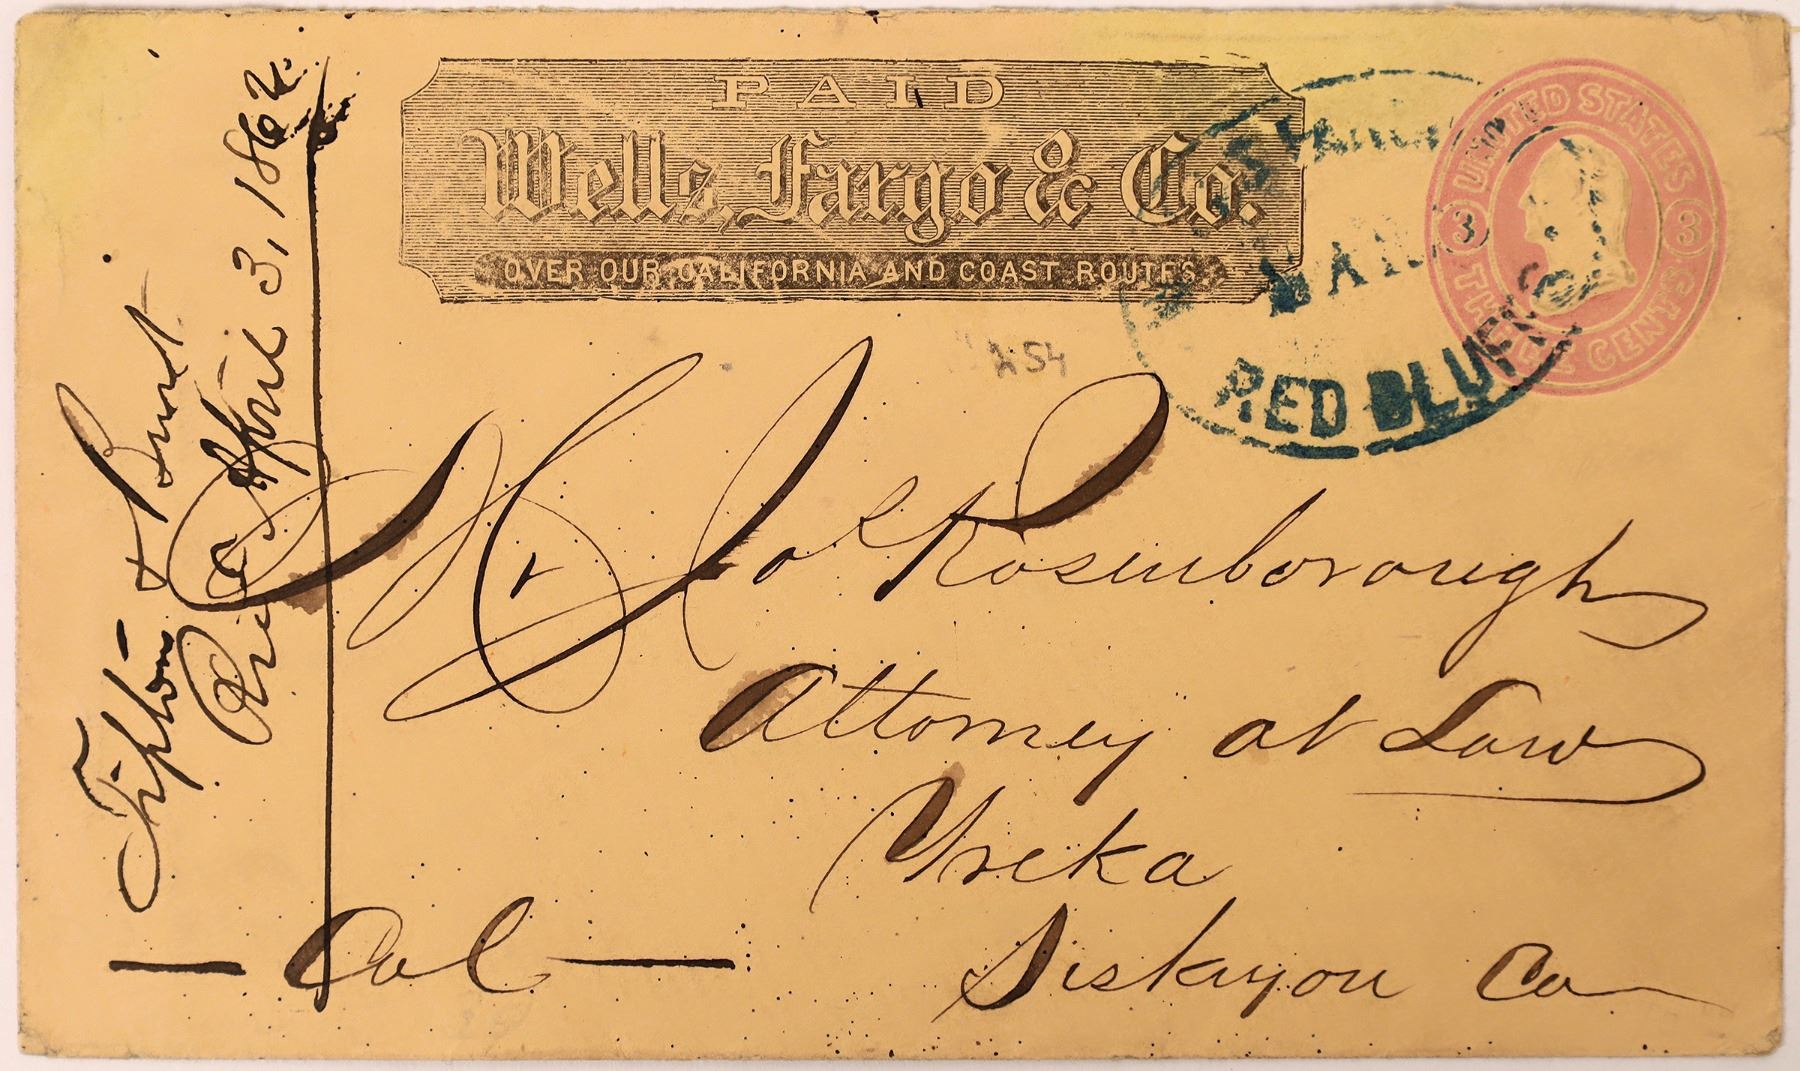 PAID
Wells, Fargo & Co.
OVER OUR CALIFORNIA AND COAST ROUTES
UNITED STATES
3 3
THREE CENTS
RED BLUFFS
254
Mr Jos Rosenborough
Attorney at Law
Yreka
Siskiyou Co
Cal
Tipton & Burt
April 3, 1862